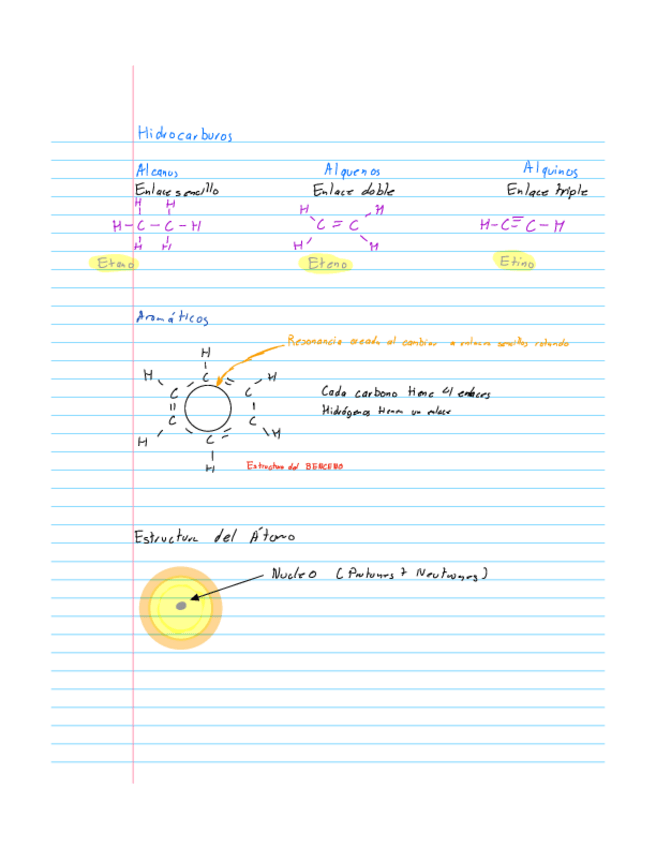 Hidrocarburos
Alcanos Alquenos Alquinos
Enlace sencillo Enlace doble Enlace triple
H H H H
H-C-C-H C=C H-C≡C-H
H H H H
Etano Eteno Etino
Aromáticos
Resonancia creada al cambiar a enlaces sencillos rotando
H
H C H
C C
Cada carbono tiene 4 enlaces
C C
Hidrógenos tienen un enlace
H C H
H
Estructura del BENCENO
Estructura del Átomo
Nucleo (Protones + Neutrones)